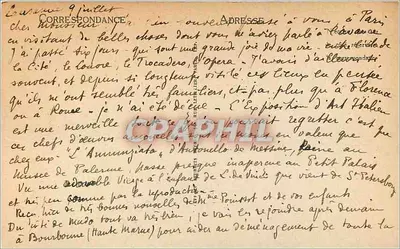 Lausanne 9 juillet
CORRESPONDANCE ADRESSE
cher Monsieur
souvent pensé à vous, à Paris
en visitant de belles choses dont vous m'aviez parlé à Lausanne
J'ai passé six jours - qui sont une grande joie de ma vie - entre
la Cité, le Louvre, le Trocadero, l'Opera - J'avais d'ailleurs si
souvent, et depuis si longtemps visité ces lieux en pensée
qu'ils m'ont semblé très familiers, et pas plus qu'à Florence
ou à Rome - je n'ai été déçue - L'Exposition d'Art Italien
est une merveille regretter c'est que
ces chefs d'œuvre en valeur que
chez eux - L'Annunziata, d'Antonello de Messine, reine au
Musée de Palerme, passe presque inaperçue au Petit Palais
Vu une Vierge à l'enfant de L. da Vinci que vient de St Petersbourg
et très peu connue par la reproduction -
Reçu hier de très bonnes nouvelles de et de vos enfants
Du côté de tout va très bien, je vais les rejoindre après demain
à Bourbonne (Haute Marne) pour aider au déménagement de toute la
CPAPHIL